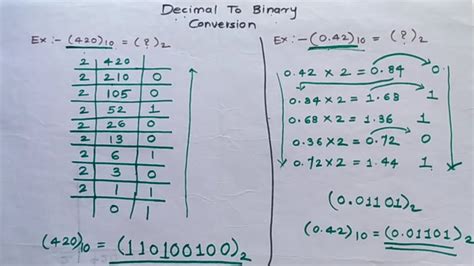 Decimal To Binary
Conversion
Ex :- (420)10 = (?)2
2 | 420
2 | 210 | 0
2 | 105 | 0
2 | 52 | 1
2 | 26 | 0
2 | 13 | 0
2 | 6 | 1
2 | 3 | 0
2 | 1 | 1
0 | 1
(420)10 = (110100100)2
Ex :- (0.42)10 = (?)2
0.42 x 2 = 0.84 0
0.84 x 2 = 1.68 1
0.68 x 2 = 1.36 1
0.36 x 2 = 0.72 0
0.72 x 2 = 1.44 1
(0.01101)2
(0.42)10 = (0.01101)2